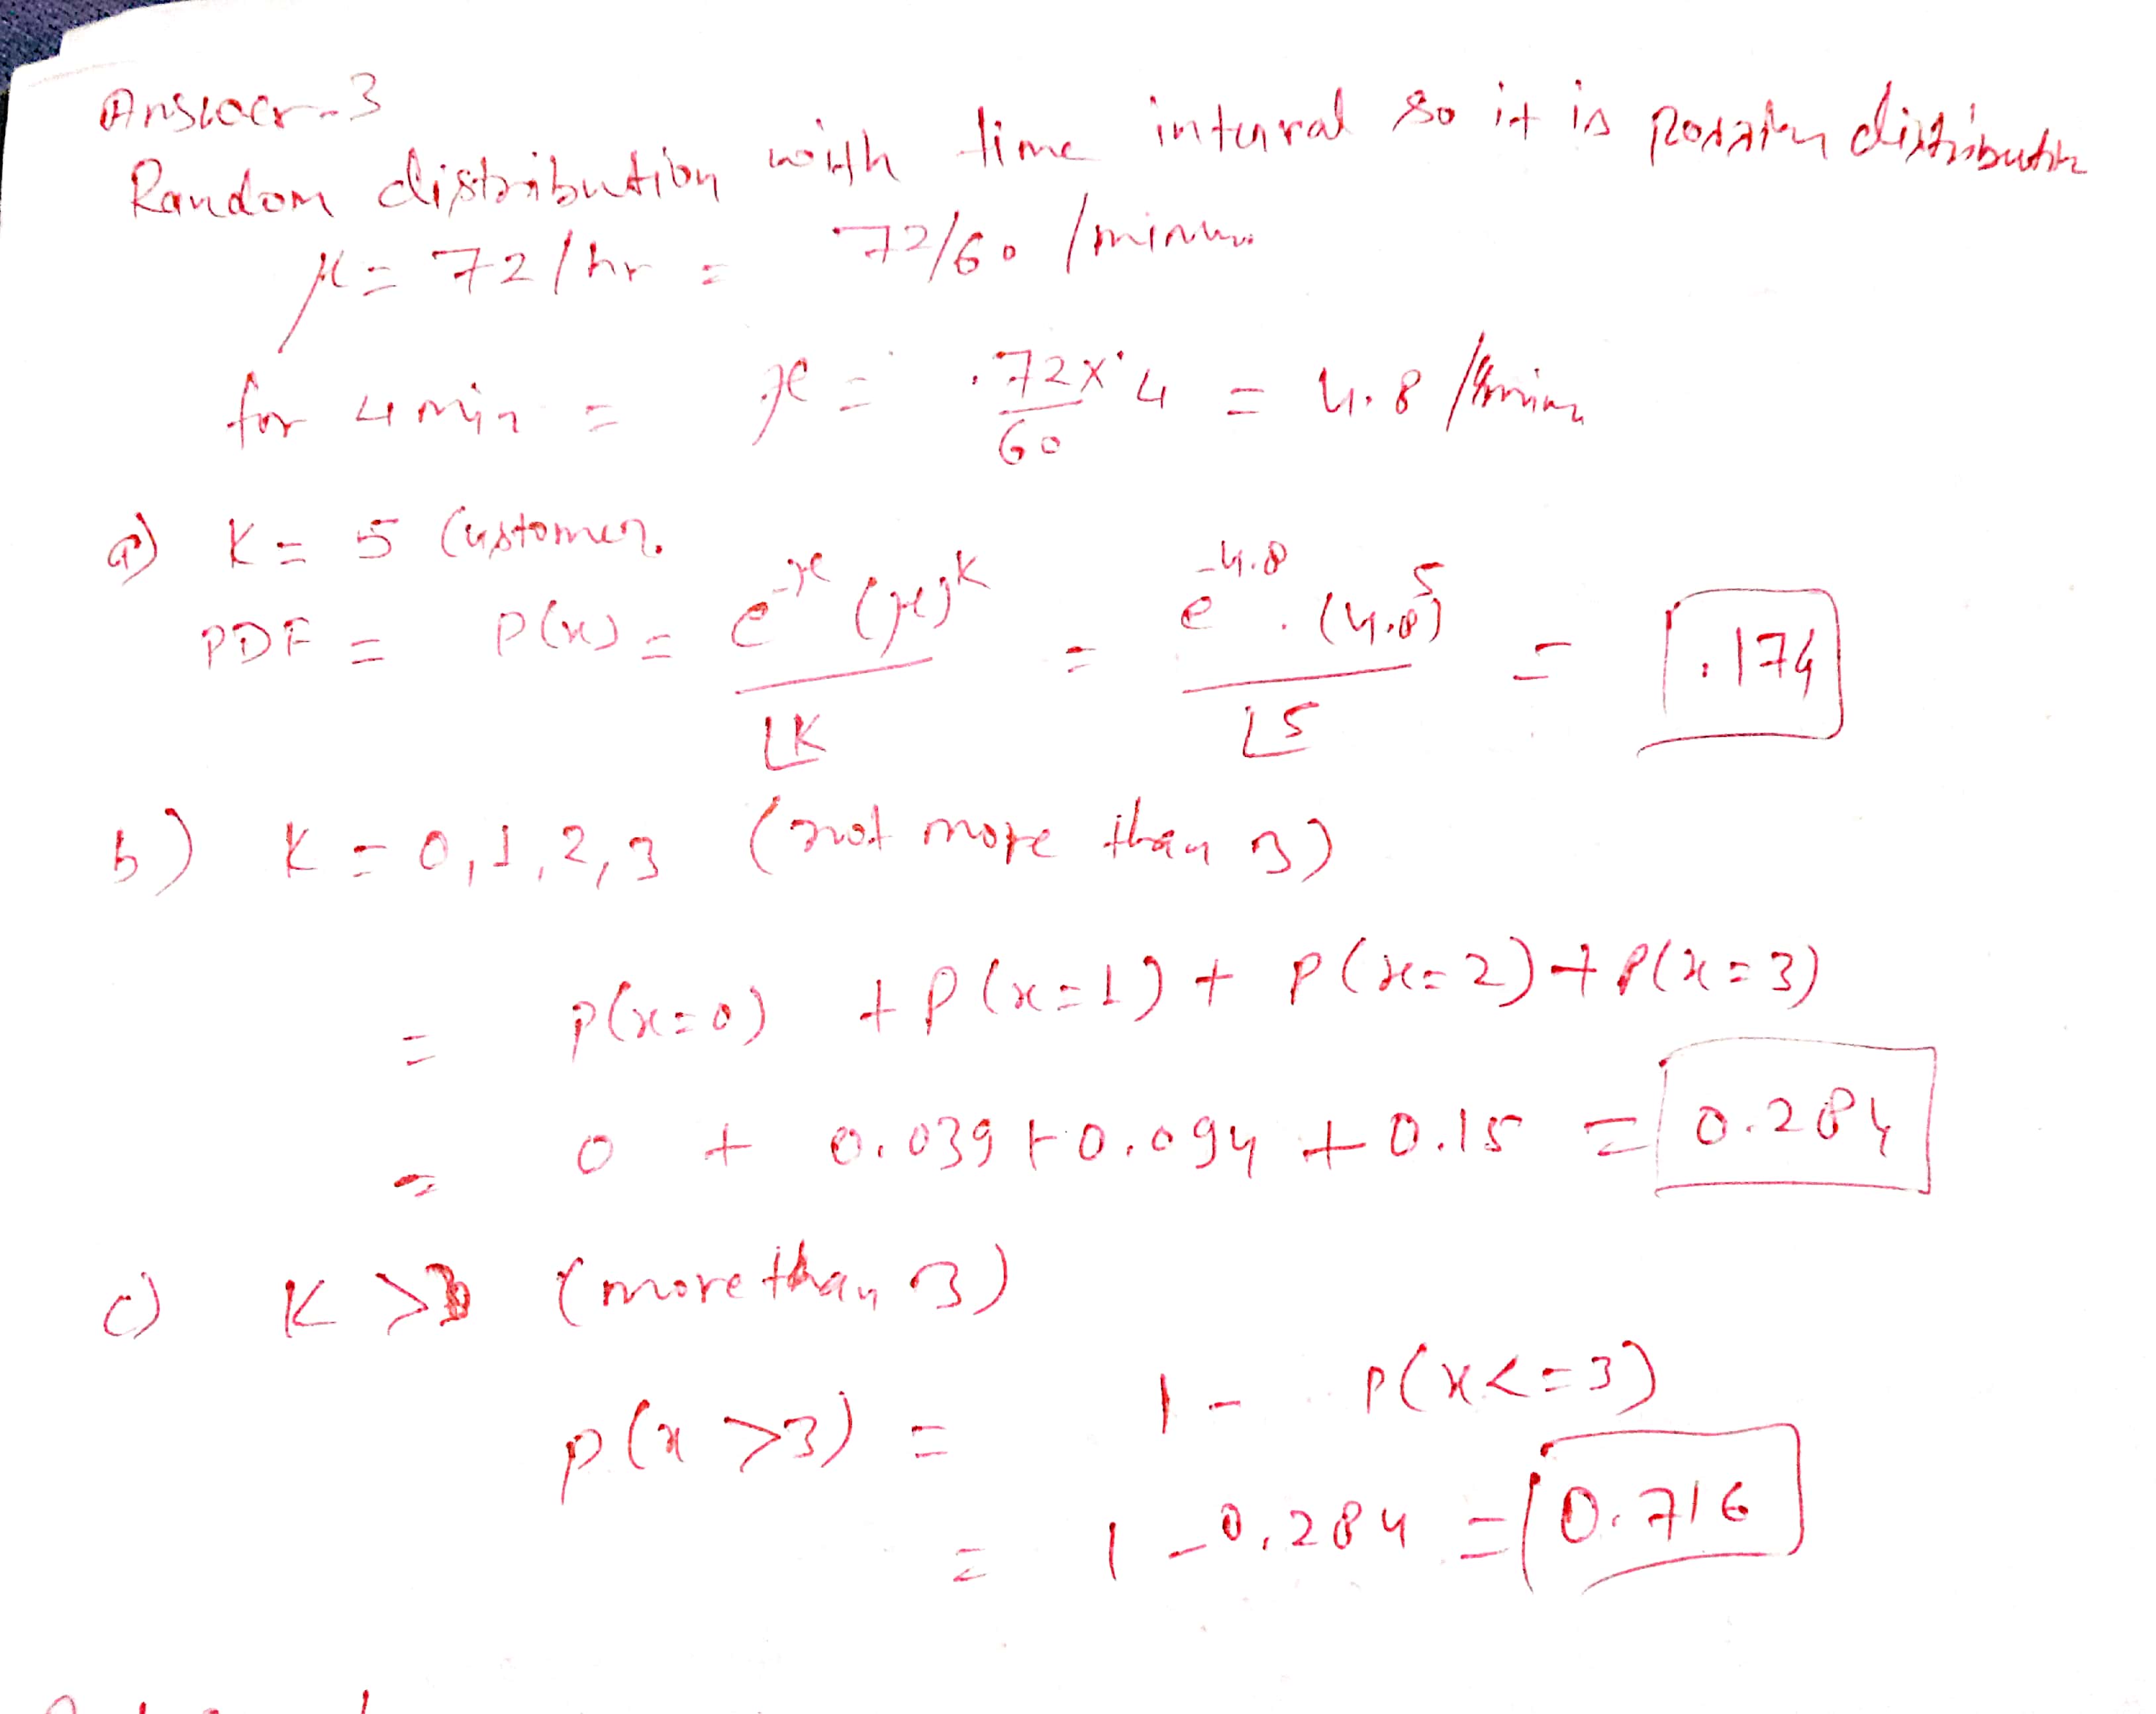 Answer-3
Random distribution with time interval so it is Poission distribution
μ = 72/hr = 72/60 /minute
for 4 min = μ = 72×4/60 = 4.8 /4min
a) K = 5 Customer.
PDF = P(x) = e^-μ (μ)^K / ⌊K = e^-4.8 . (4.8)^5 / ⌊5 = .174
b) K = 0,1,2,3 (not more than 3)
= P(x=0) + P(x=1) + P(x=2) + P(x=3)
= 0 + 0.039 + 0.094 + 0.15 = 0.284
c) K >3 (more than 3)
P(x >3) = 1 - P(x<=3)
= 1 - 0.284 = 0.716